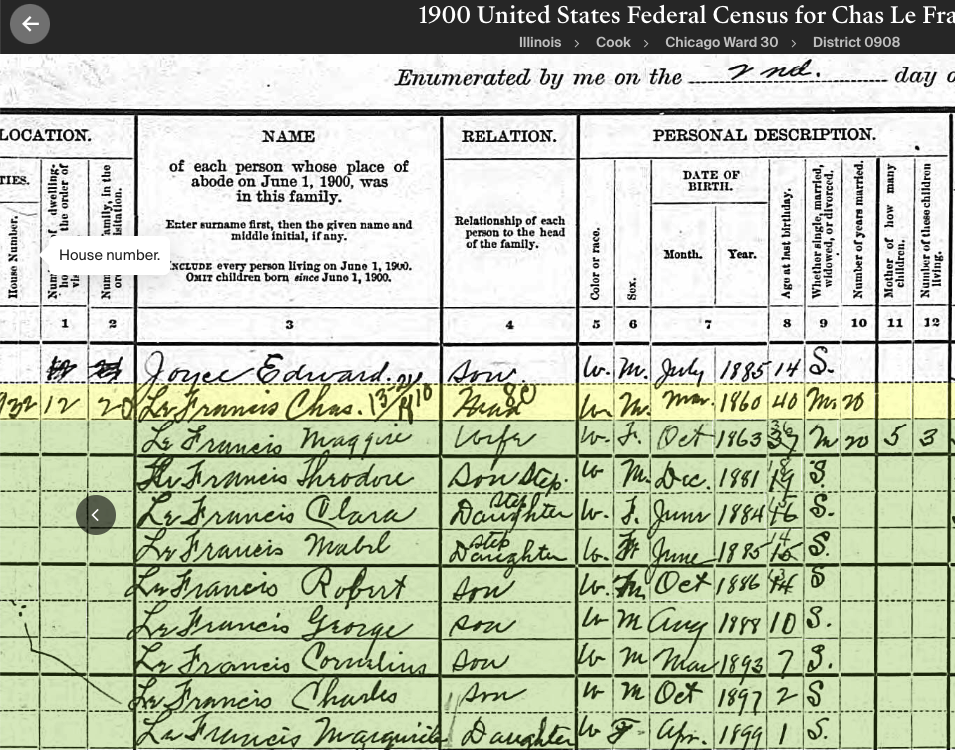 1900 United States Federal Census for Chas Le Fra
Illinois > Cook > Chicago Ward 30 > District 0908
Enumerated by me on the 2nd. day o
LOCATION. NAME RELATION. PERSONAL DESCRIPTION.
TIES.
House Number.
of each person whose place of
abode on June 1, 1900, was
in this family.
Enter surname first, then the given name and
middle initial, if any.
INCLUDE every person living on June 1, 1900.
OMIT children born since June 1, 1900.
Relationship of each
person to the head
of the family.
Color or race.
Sex.
DATE OF
BIRTH.
Month. Year.
Age at last birthday.
Whether single, married,
widowed, or divorced.
Number of years married.
Mother of how many
children.
Number of these children
living.
House number.
1 2 3 4 5 6 7 8 9 10 11 12
Joyce Edward. son W. M. July 1885 14 S.
932 12 20 Le Francis Chas. Head W. M. Mar. 1860 40 M. 20
Le Francis Maggie Wife W. F. Oct 1863 36 M 20 5 3
Le Francis Theodore Son Step. W M. Dec. 1881 S.
Le Francis Clara step Daughter W. F. June 1884 S.
Le Francis Mabel step Daughter W. F. June 1885 S.
Le Francis Robert son W. M. Oct 1886 S
Le Francis George son W M Aug 1888 10 S.
Le Francis Cornelius son W M Mar 1893 7 S.
Le Francis Charles son W M Oct 1897 2 S
Le Francis Marguirite Daughter W F Apr. 1899 1 S.